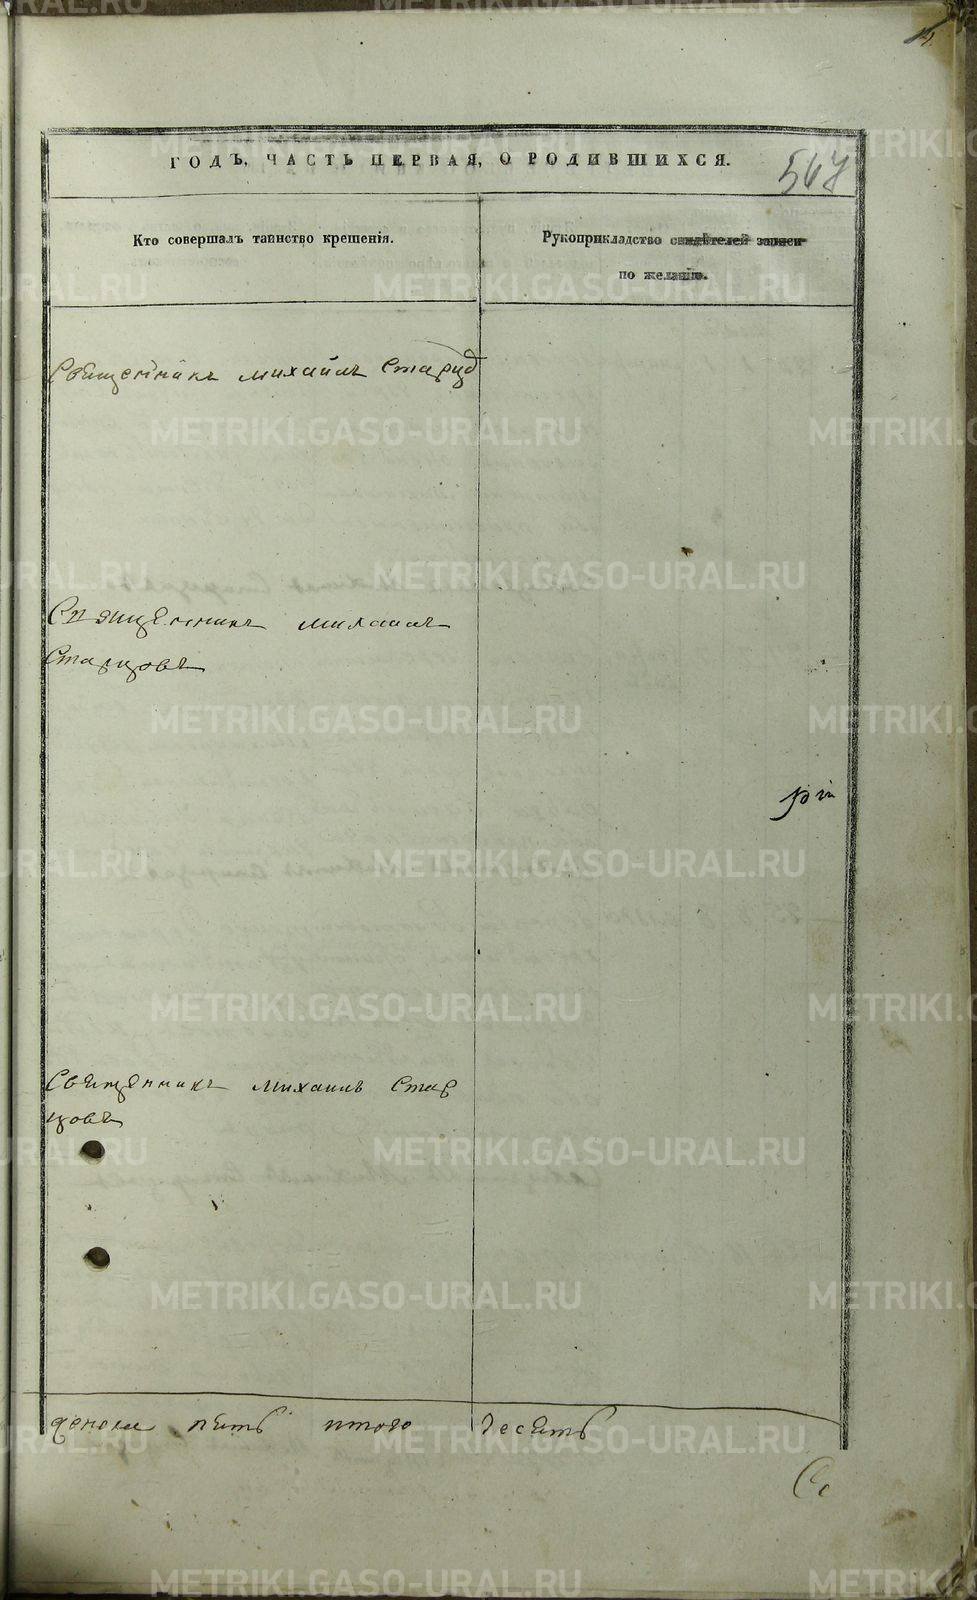 ГОДЪ, ЧАСТЬ ПЕРВАЯ, О РОДИВШИХСЯ.
567
Кто совершалъ таинство крещенія.
Рукоприкладство свидѣтелей записи
по желанію.
Священникъ Михаилъ Старцо
Священникъ Михаилъ
Старцовъ
Священникъ Михаилъ Стар
цовъ
пять итого десять
METRIKI.GASO-URAL.RU